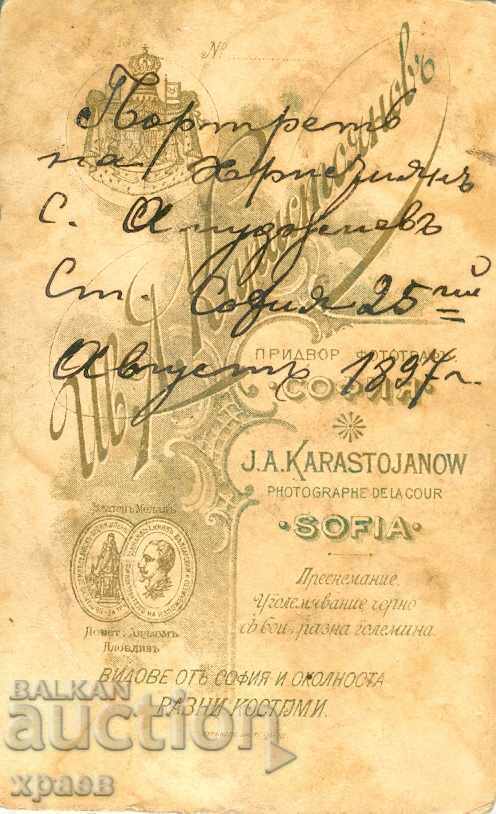 №
Портретъ
на Християнъ
С.
Ст. София 25 тий
Августъ 1897 г.
Карастояновъ
ПРИДВОР. ФОТОГРАФЪ
·СОФИЯ·
J.A.KARASTOJANOW
PHOTOGRAPHE DE LA COUR
·SOFIA·
Златенъ Медалъ
Почет. Дипломъ
Пловдивъ
Преснемание,
Уголемявание черно
съ бои, разна големина.
ВИДОВЕ ОТЪ СОФИЯ И ОКОЛНОСТА
РАЗНИ КОСТЮМИ.
BALKAN
auction
храев